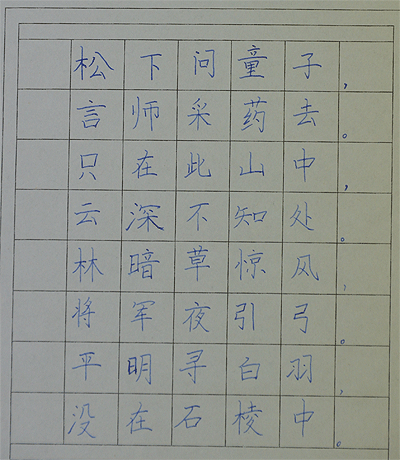 松下问童子，
言师采药去。
只在此山中，
云深不知处。
林暗草惊风，
将军夜引弓。
平明寻白羽，
没在石棱中。